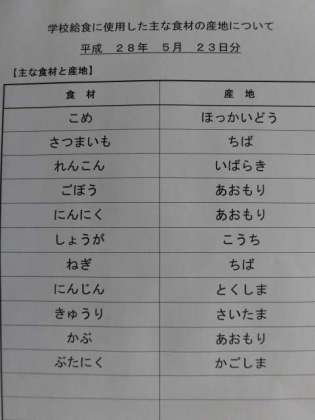 学校給食に使用した主な食材の産地について
平成 28年 5月 23日分
【主な食材と産地】
食 材 産 地
こめ ほっかいどう
さつまいも ちば
れんこん いばらき
ごぼう あおもり
にんにく あおもり
しょうが こうち
ねぎ ちば
にんじん とくしま
きゅうり さいたま
かぶ あおもり
ぶたにく かごしま